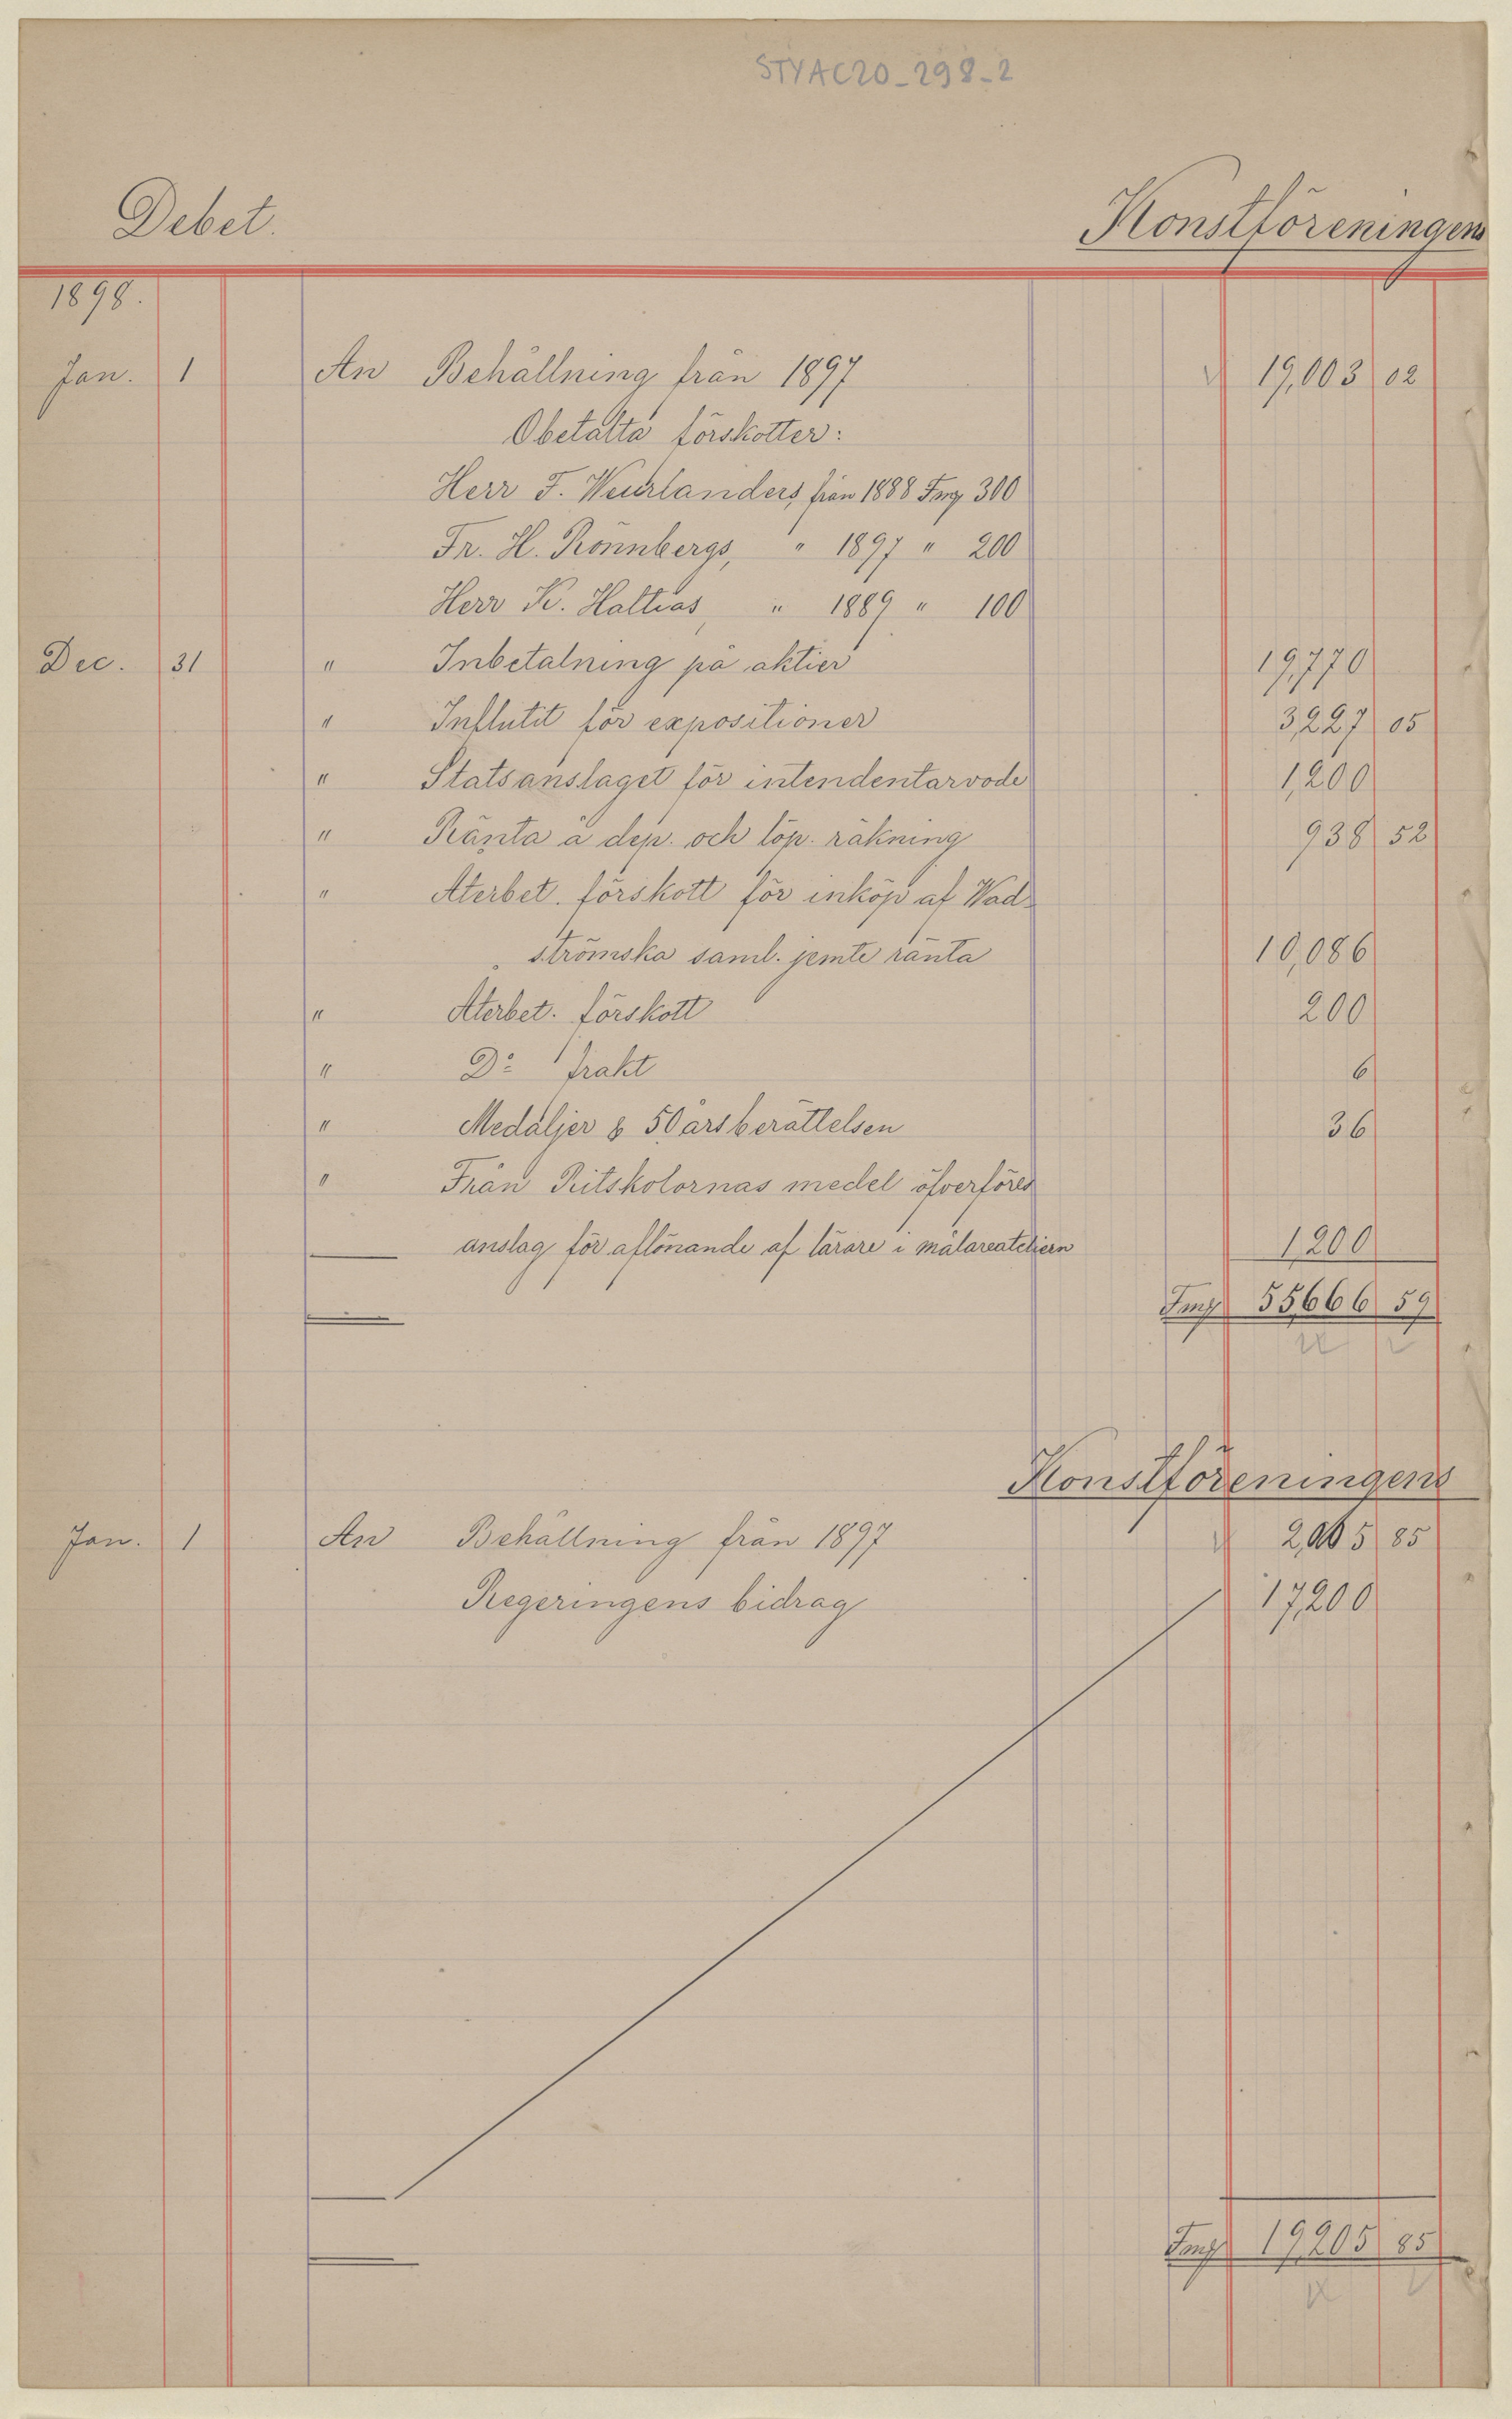 STYAC20_298_2
Debet. Konstföreningens
1898.
Jan. 1 An Behållning från 1897 19,003 02
Obetalta förskotter:
Herr F. Wuorlanders, från 1888 Fmg 300
Fr. H. Rönnbergs, " 1897 " 200
Herr K. Haltias, " 1889 " 100
Dec. 31 " Inbetalning på aktier 19,770
" Influtit för expositioner 3,227 05
" Statsanslaget för intendentarvode 1,200
" Ränta å dep. och löp. räkning 938 52
" Återbet. förskott för inköp af Wad-
strömska saml. jemte ränta 10,086
" Återbet. förskott 200
" Do frakt 6
" Medaljer & 50årsberättelsen 36
" Från Ritskolornas medel öfverföres
anslag för aflönande af lärare i målareateliern 1,200
Fmg 55,666 59
Konstföreningens
Jan. 1 An Behållning från 1897 2,005 85
Regeringens bidrag 17,200
Fmg 19,205 85